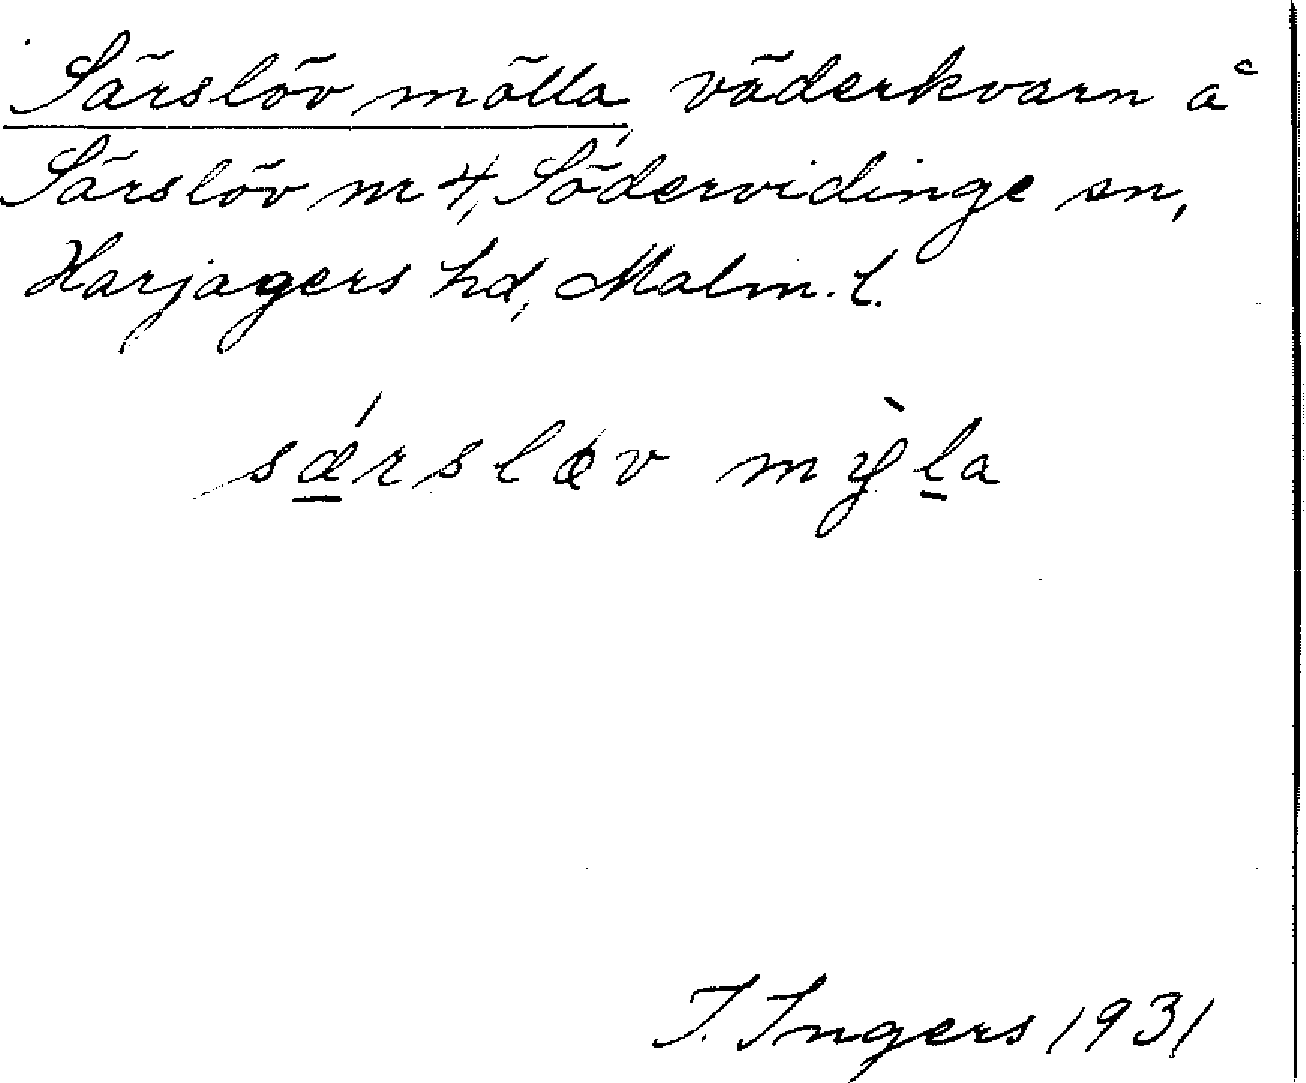 Särslöv mölla, väderkvarn å
Särslöv nr 4, Södervidinge sn,
Harjagers hd, Malm. l.
sǽrsløv mỳla
I. Ingers 1931